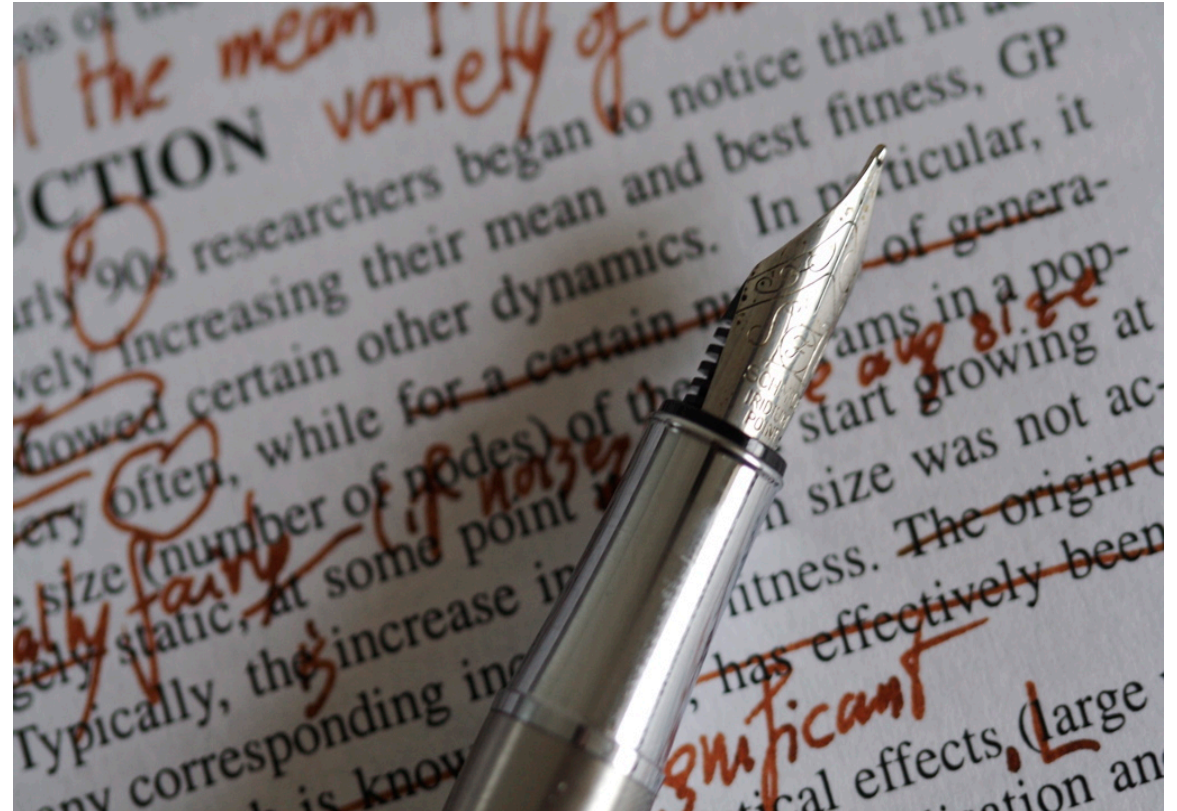 ss of the
the mean
variety of
UCTION
arly 90s researchers began to notice that in
vely increasing their mean and best fitness, GP
howed certain other dynamics. In particular, it
ery often, while for a certain of genera-
e size (number of nodes) of the rams in a pop-
e avg size
fairly (if noisy
gely static, at some point start growing at
Typically, the increase in n size was not ac-
's
any corresponding inc fitness. The origin
is know , has effectively been
gnificant
tical effects, (large
L
ization and
SCH
IRIDIUM
POINT